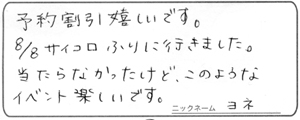 予約割引嬉しいです。
8/8サイコロふりに行きました。
当たらなかったけど、このような
イベント楽しいです。
ニックネーム ヨネ